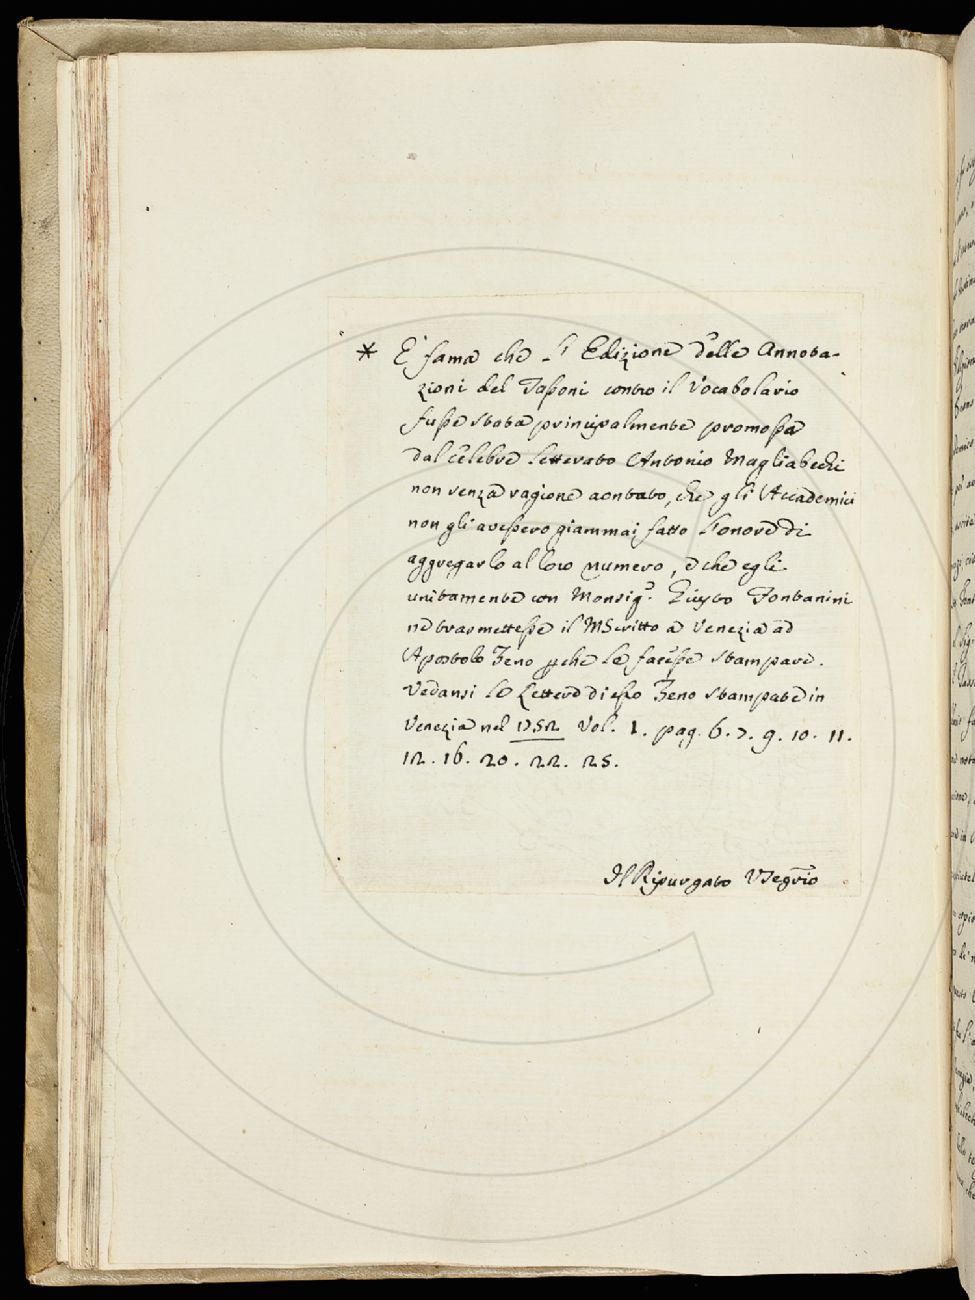 * E' fama che l'Edizione delle Annota-
zioni del Tassoni contro il Vocabolario
fusse stata principalmente promossa
dal celebre letterato Antonio Magliabechi
non senza ragione, che gli Accademici
non gli avessero giammai fatto l'onore di
aggregarlo al loro numero, e che egli
unitamente con Monsigr. Giusto Fontanini
ne trasmettesse il MScritto a Venezia ad
Apostolo Zeno pche le facesse stampare.
Vedansi le Lettere di esso Zeno stampate in
Venezia nel 1752 Vol. 1. pag. 6. 7. 9. 10. 11.
12. 16. 20. 22. 25.
Il Ripurgato